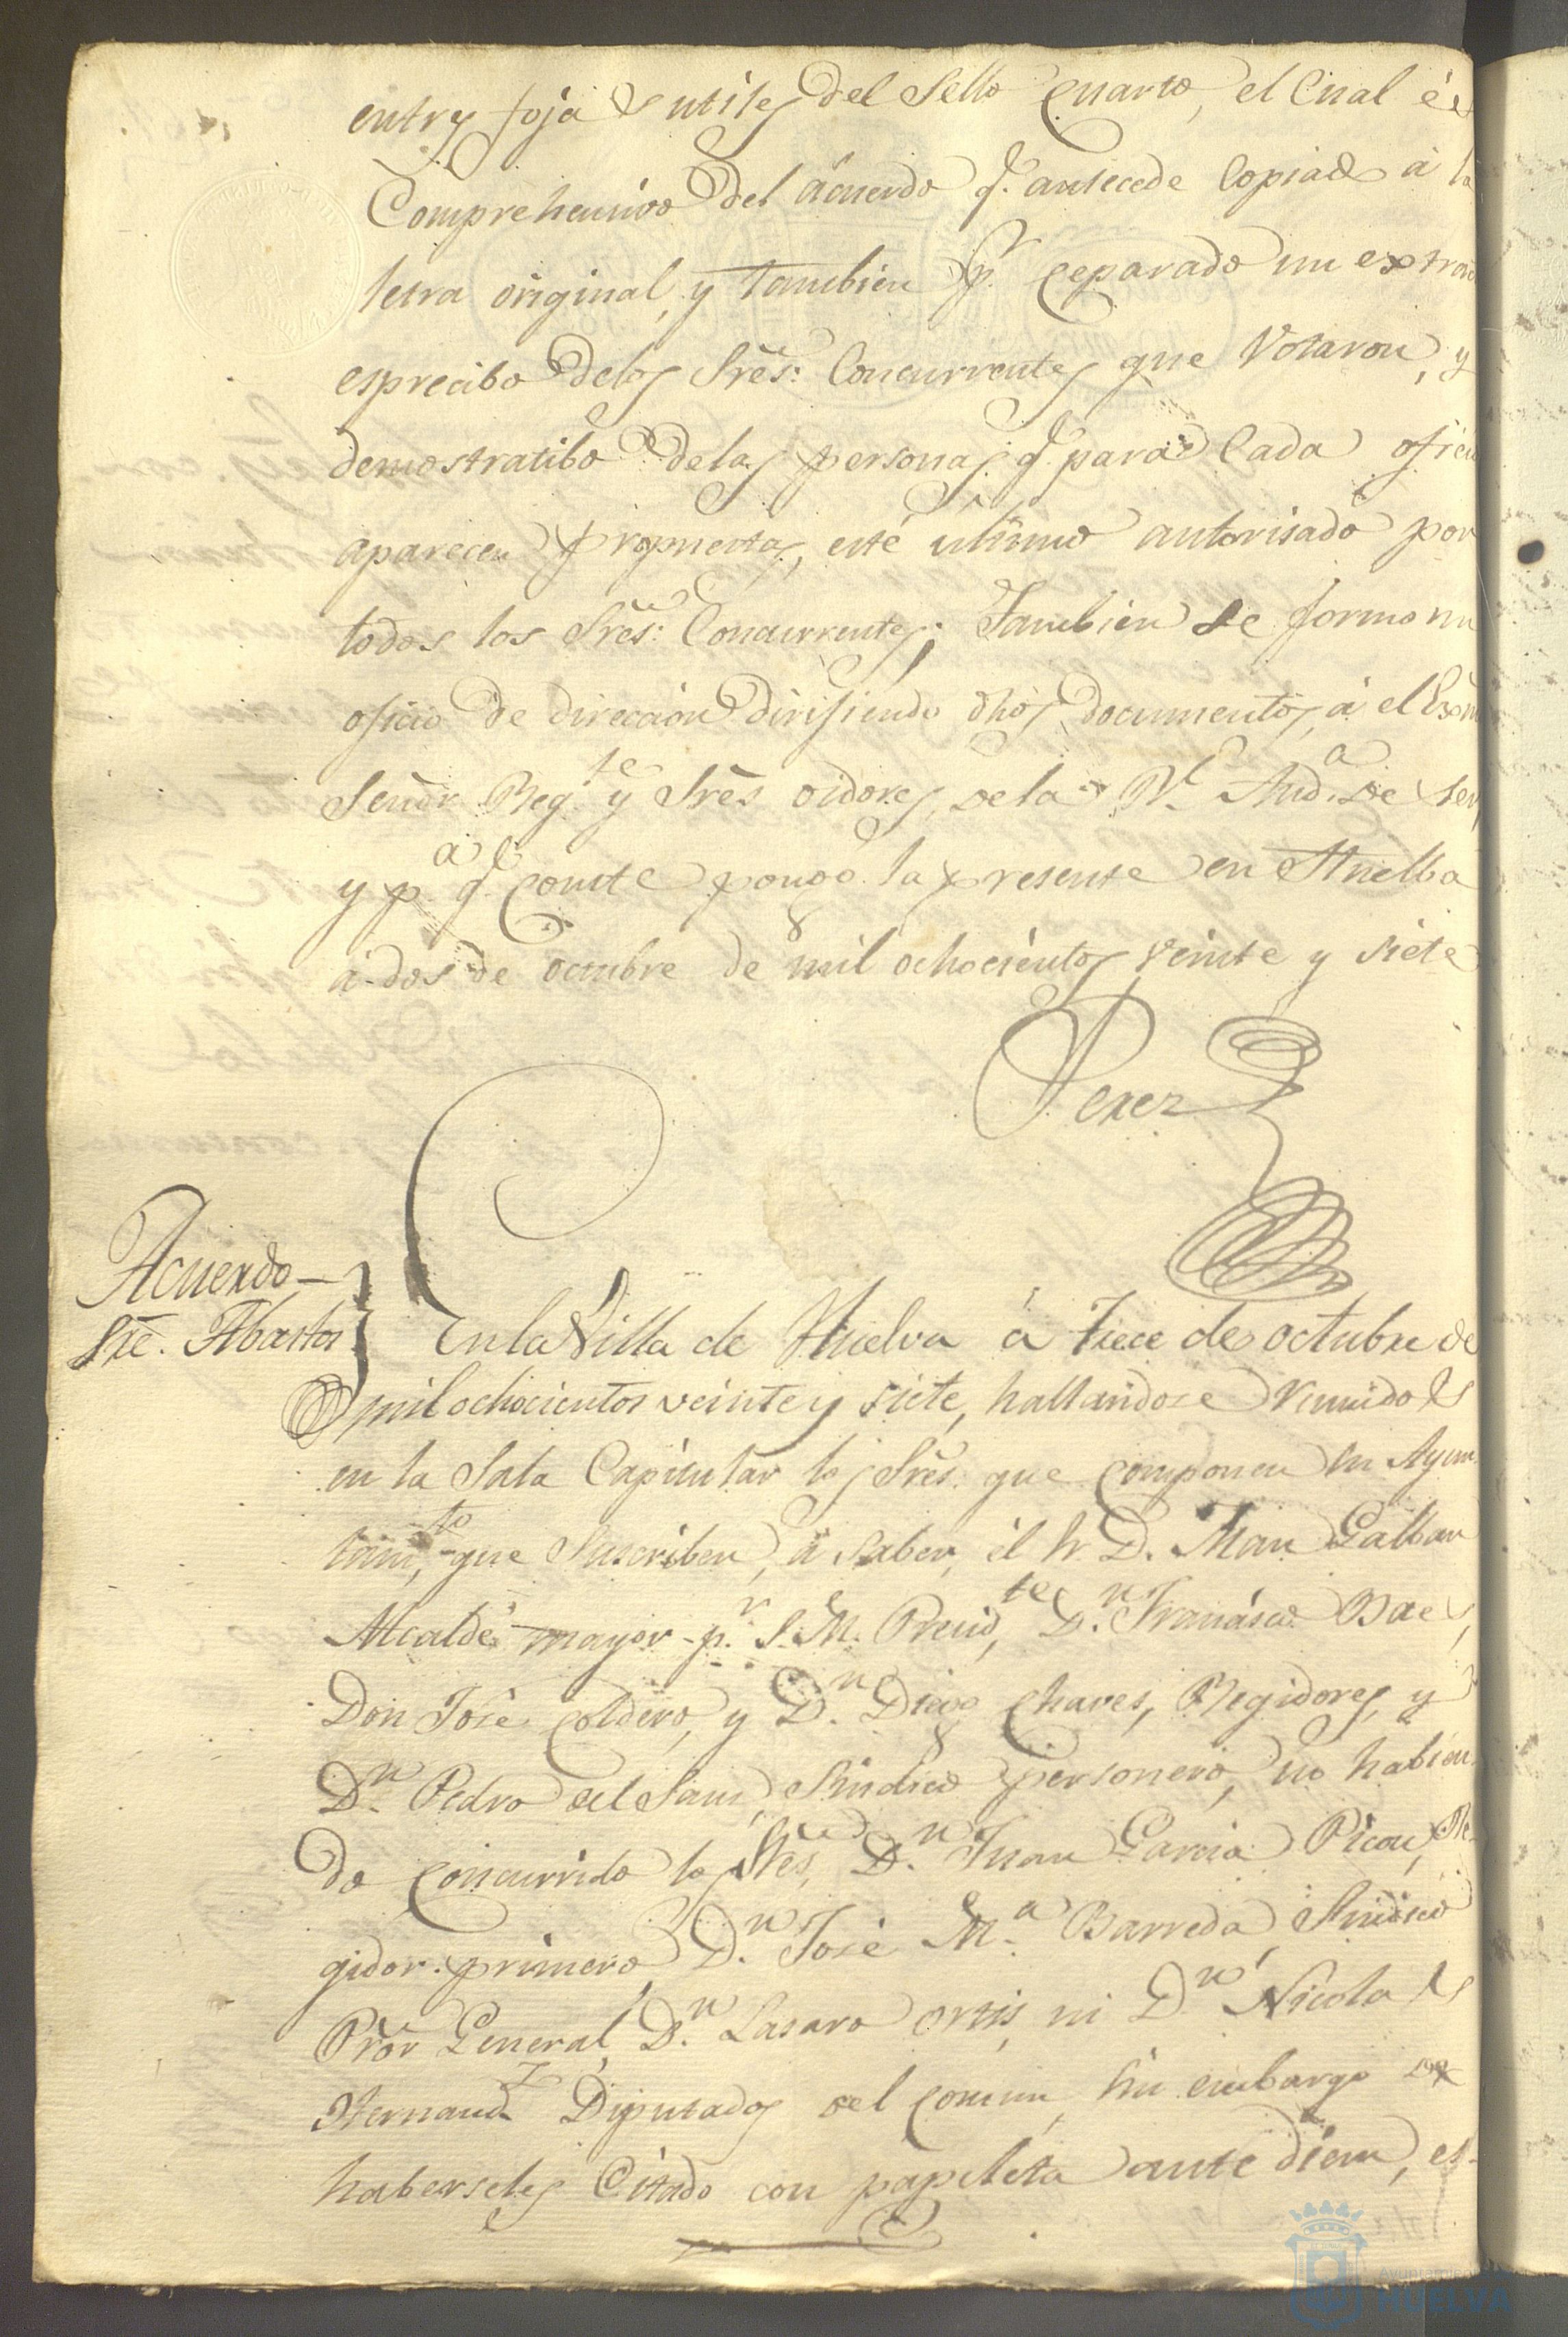 entres fojas utiles del Sello Cuarto, el Cual és
Comprehensivo del ácuerdo q.e antecede Copiado á la
letra original, y tambien p.r ceparado un extrac
esprecibo delos Sres. Concurrentes que Votaron, y
demostratibo delas personas q.e para Cada ofici
aparecen propuestas, esté ultimo autorisado por
todos los Sres. Concurrentes; Tambien se formo un
oficio de direccion dirifiendo dhos documentos, á el Exm
Señor Reg.te y Sres oidores, de la R.l Aud.a de Sev
y p.a q.e conste pongo la presente en Huelba
á dos de octubre de mil ochocientos veinte y siete
Perez
Acuerdo
Sre. Abastos
En la Villa de Huelva á Trece de octubre de
mil ochocientos veinte y siete, hallandose reunidos
en la Sala Capitular los Sres. que componen su Ayun
tam.to que Suscriben, á saber, él Sr. D. Man Galban
Alcalde mayor p.r S. M. Presid.te, D.n Francisco Baes,
Don José Coldero, y D.n Diego Chaves, Regidores, y
D.n Pedro del Sans, Sindico personero, no habien
do concurrido los Sres, D.n Juan Garcia Picon, Re
gidor primero, D.n José M.a Barreda Sindico
Pror General, D.n Lasaro ortis, ni D.n Nicolas
Hernand.z Diputados del comun, sin embargo de
haberseles Citado con papeleta ante diem, es-
Ayuntamiento
HUELVA